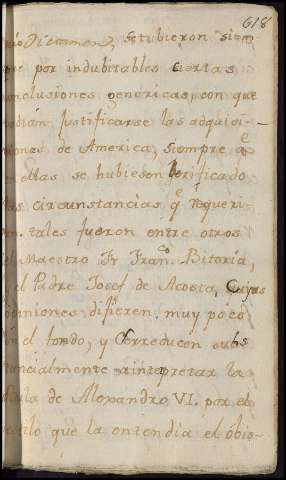 618
Dictamen, se tubieron siem
por indubitables ciertas
onclusiones genericas, con que
odian justificarse las adquisi-
iones de America, siempre qe
ellas se hubiesen berificado
as circunstancias qe requeri
an. tales fueron entre otros
el Maestro Fr Franco. Bitoria,
el Padre Josef de Acosta, Cuyas
opiniones difieren muy poco
en el fondo, y se reducen subs
tancialmente a interpretar la
Bula de Alexandro VI. por el
estilo que la entendia el óbis-